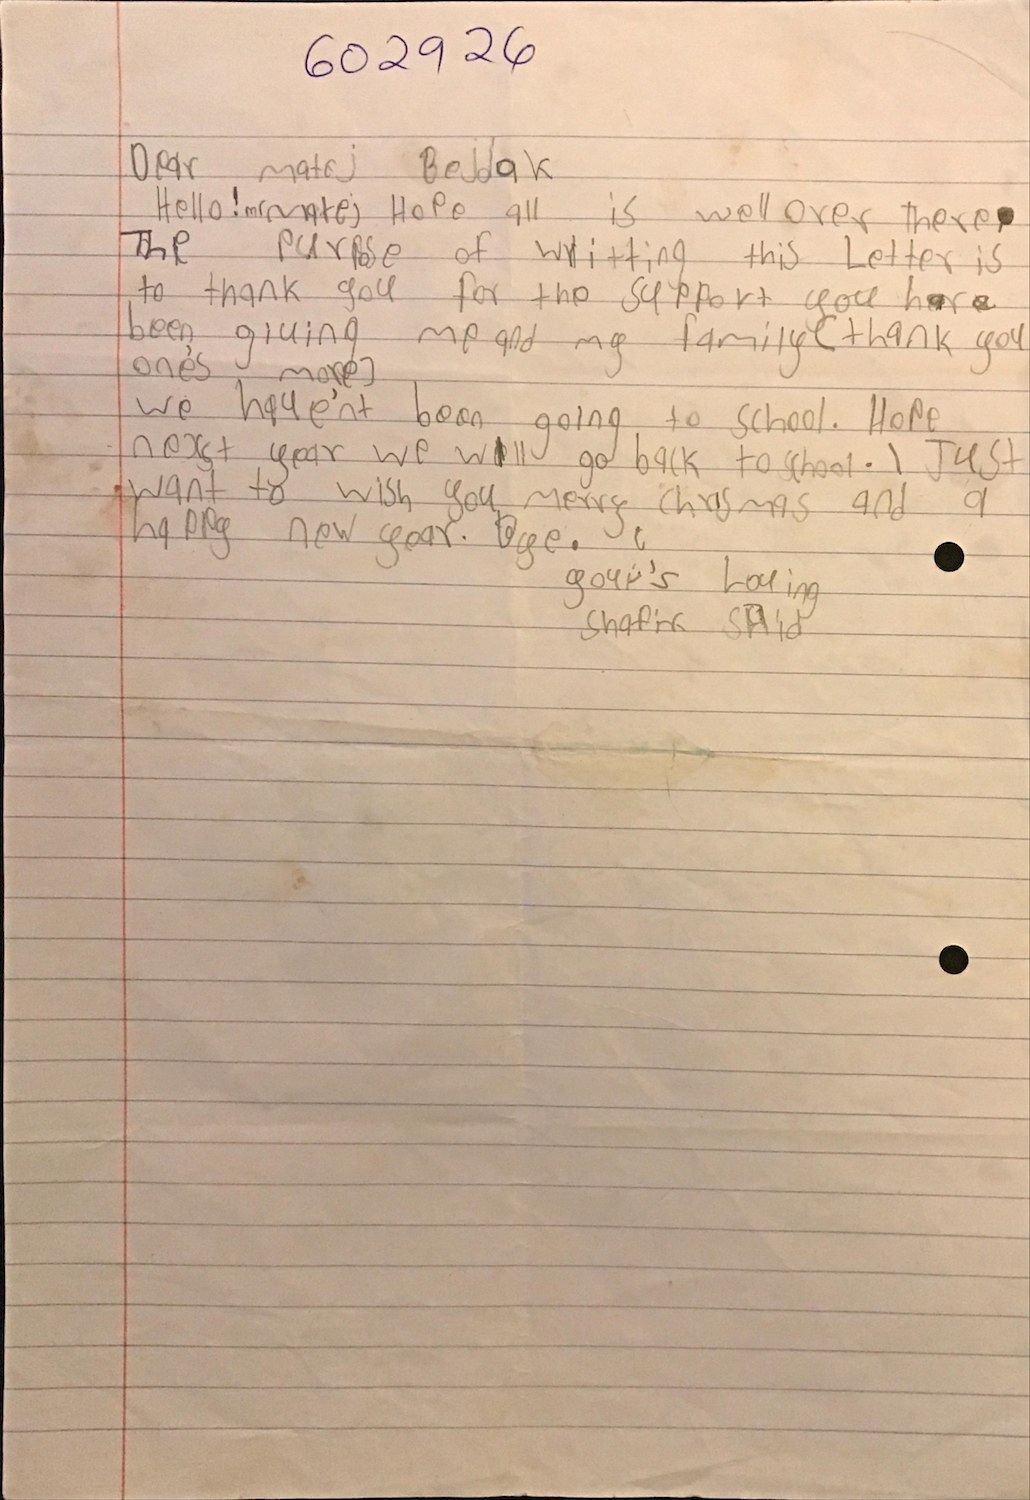 602926
Dear matej Bejdak
Hello! mr matej Hope all is well over there.
The purpose of writting this Letter is
to thank you for the support you have
been giving me and my family (thank you
one's more)
we have'nt been going to school. Hope
next year we will go back to school. I Just
want to wish you merry chrismas and a
happy new year. Bye.
your's Loving
Shafik SAid